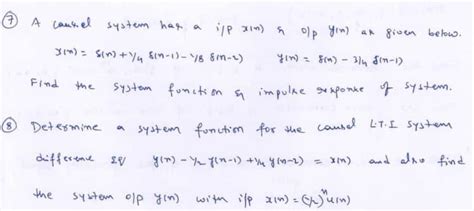 ⑦ A causel system has a i/p x(n) & o/p y(n) as given below.
x(n) = δ(n) + 1/4 δ(n-1) - 1/8 δ(n-2)     y(n) = δ(n) - 3/4 δ(n-1)
Find the system function & impulse response of system.
⑧ Determine a system function for the causel L.T.I system
difference Eq y(n) - 1/2 y(n-1) + 1/4 y(n-2) = x(n) and also find
the system o/p y(n) with i/p x(n) = (1/2)ⁿ u(n)